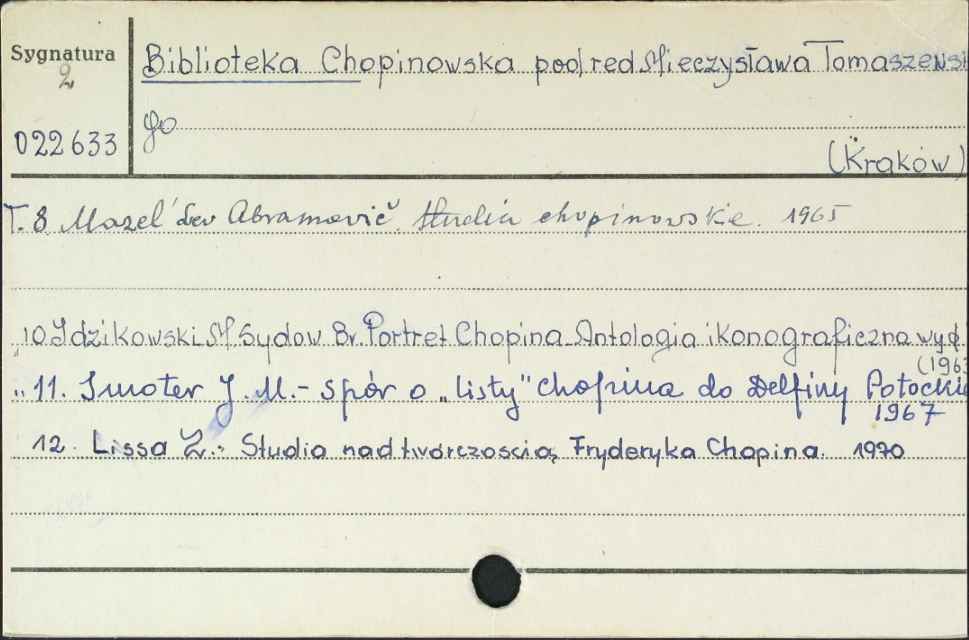 Sygnatura
2
022633
Biblioteka Chopinowska pod red Mieczysława Tomaszewsk
go
(Kraków)
T. 8 Mazel' Lev Abramovič. Studia chopinowskie. 1965
" 10 Idzikowski M. Sydow Br. Portret Chopina. Antologia ikonograficzna wyd.
(1963
" 11. Smoter J. M. - Spór o „listy" Chopina do Delfiny Potockie
1967
12. Lissa Z.: Studia nad twórczoscią Fryderyka Chopina. 1970